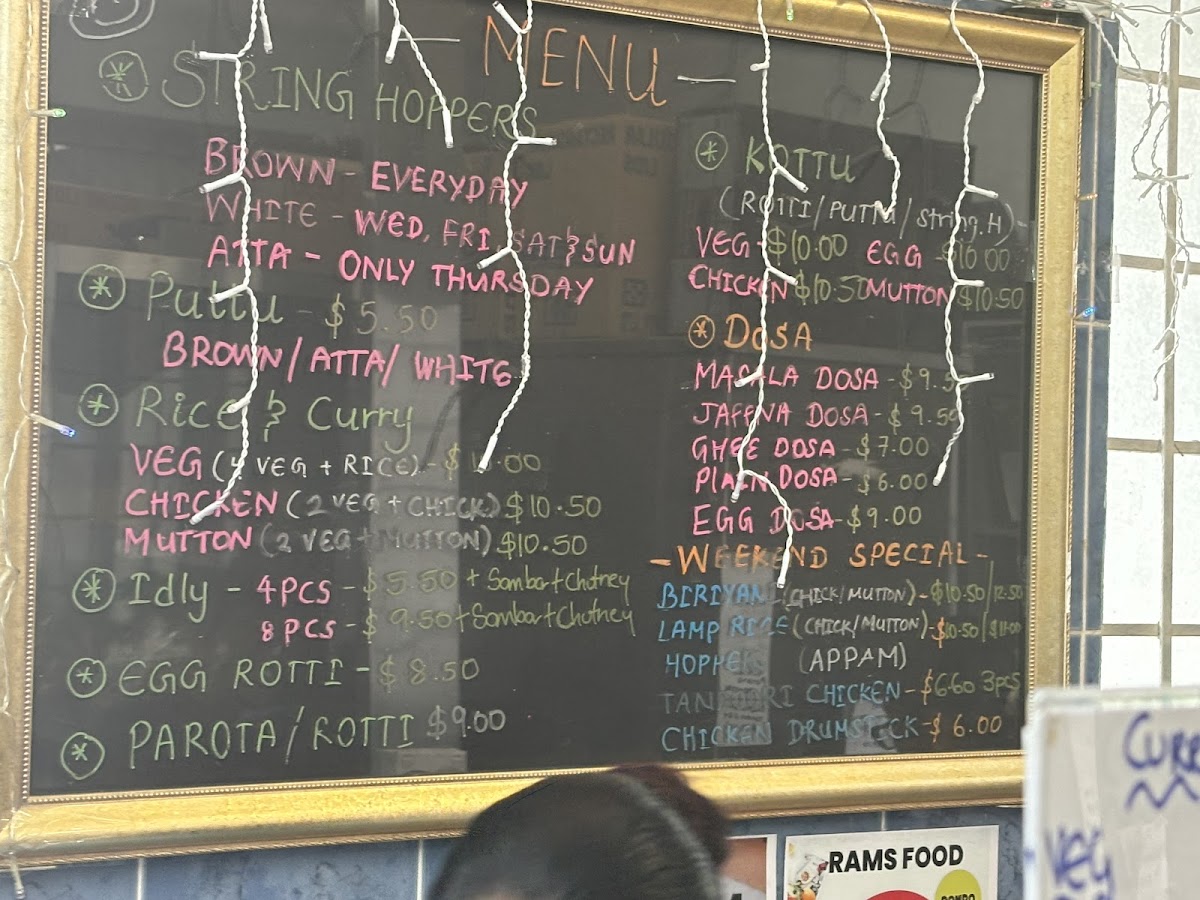 — MENU —
* STRING HOPPERS
BROWN - EVERYDAY
WHITE - WED, FRI, SAT & SUN
ATTA - ONLY THURSDAY
* Puttu - $5.50
BROWN/ATTA/ WHITE
* Rice & Curry
VEG (4 VEG + RICE) -
CHICKEN (2 VEG + CHICK) $10.50
MUTTON (2 VEG + MUTTON) $10.50
* Idly - 4 PCS - $5.50 + Sambar + Chutney
8 PCS - $9.50 + Sambar + Chutney
* EGG ROTTI - $8.50
* PAROTA/ROTTI $9.00
* KOTTU
(ROTTI/PUTTU/string.H) -
VEG - $10.00 EGG - $10.00
CHICKEN $10.50 MUTTON - $10.50
* DOSA
MASALA DOSA - $9.5
JAFFNA DOSA - $9.50
GHEE DOSA - $7.00
PLAIN DOSA - $6.00
EGG DOSA - $9.00
- WEEKEND SPECIAL -
BIRIYANI (CHICK/MUTTON) - $10.50/12.50
LAMP RICE (CHICK/MUTTON) - $10.50/$11.00
HOPPERS (APPAM)
TANDOORI CHICKEN - $6.60 3pcs
CHICKEN DRUMSTICK - $6.00
RAMS FOOD
VEG